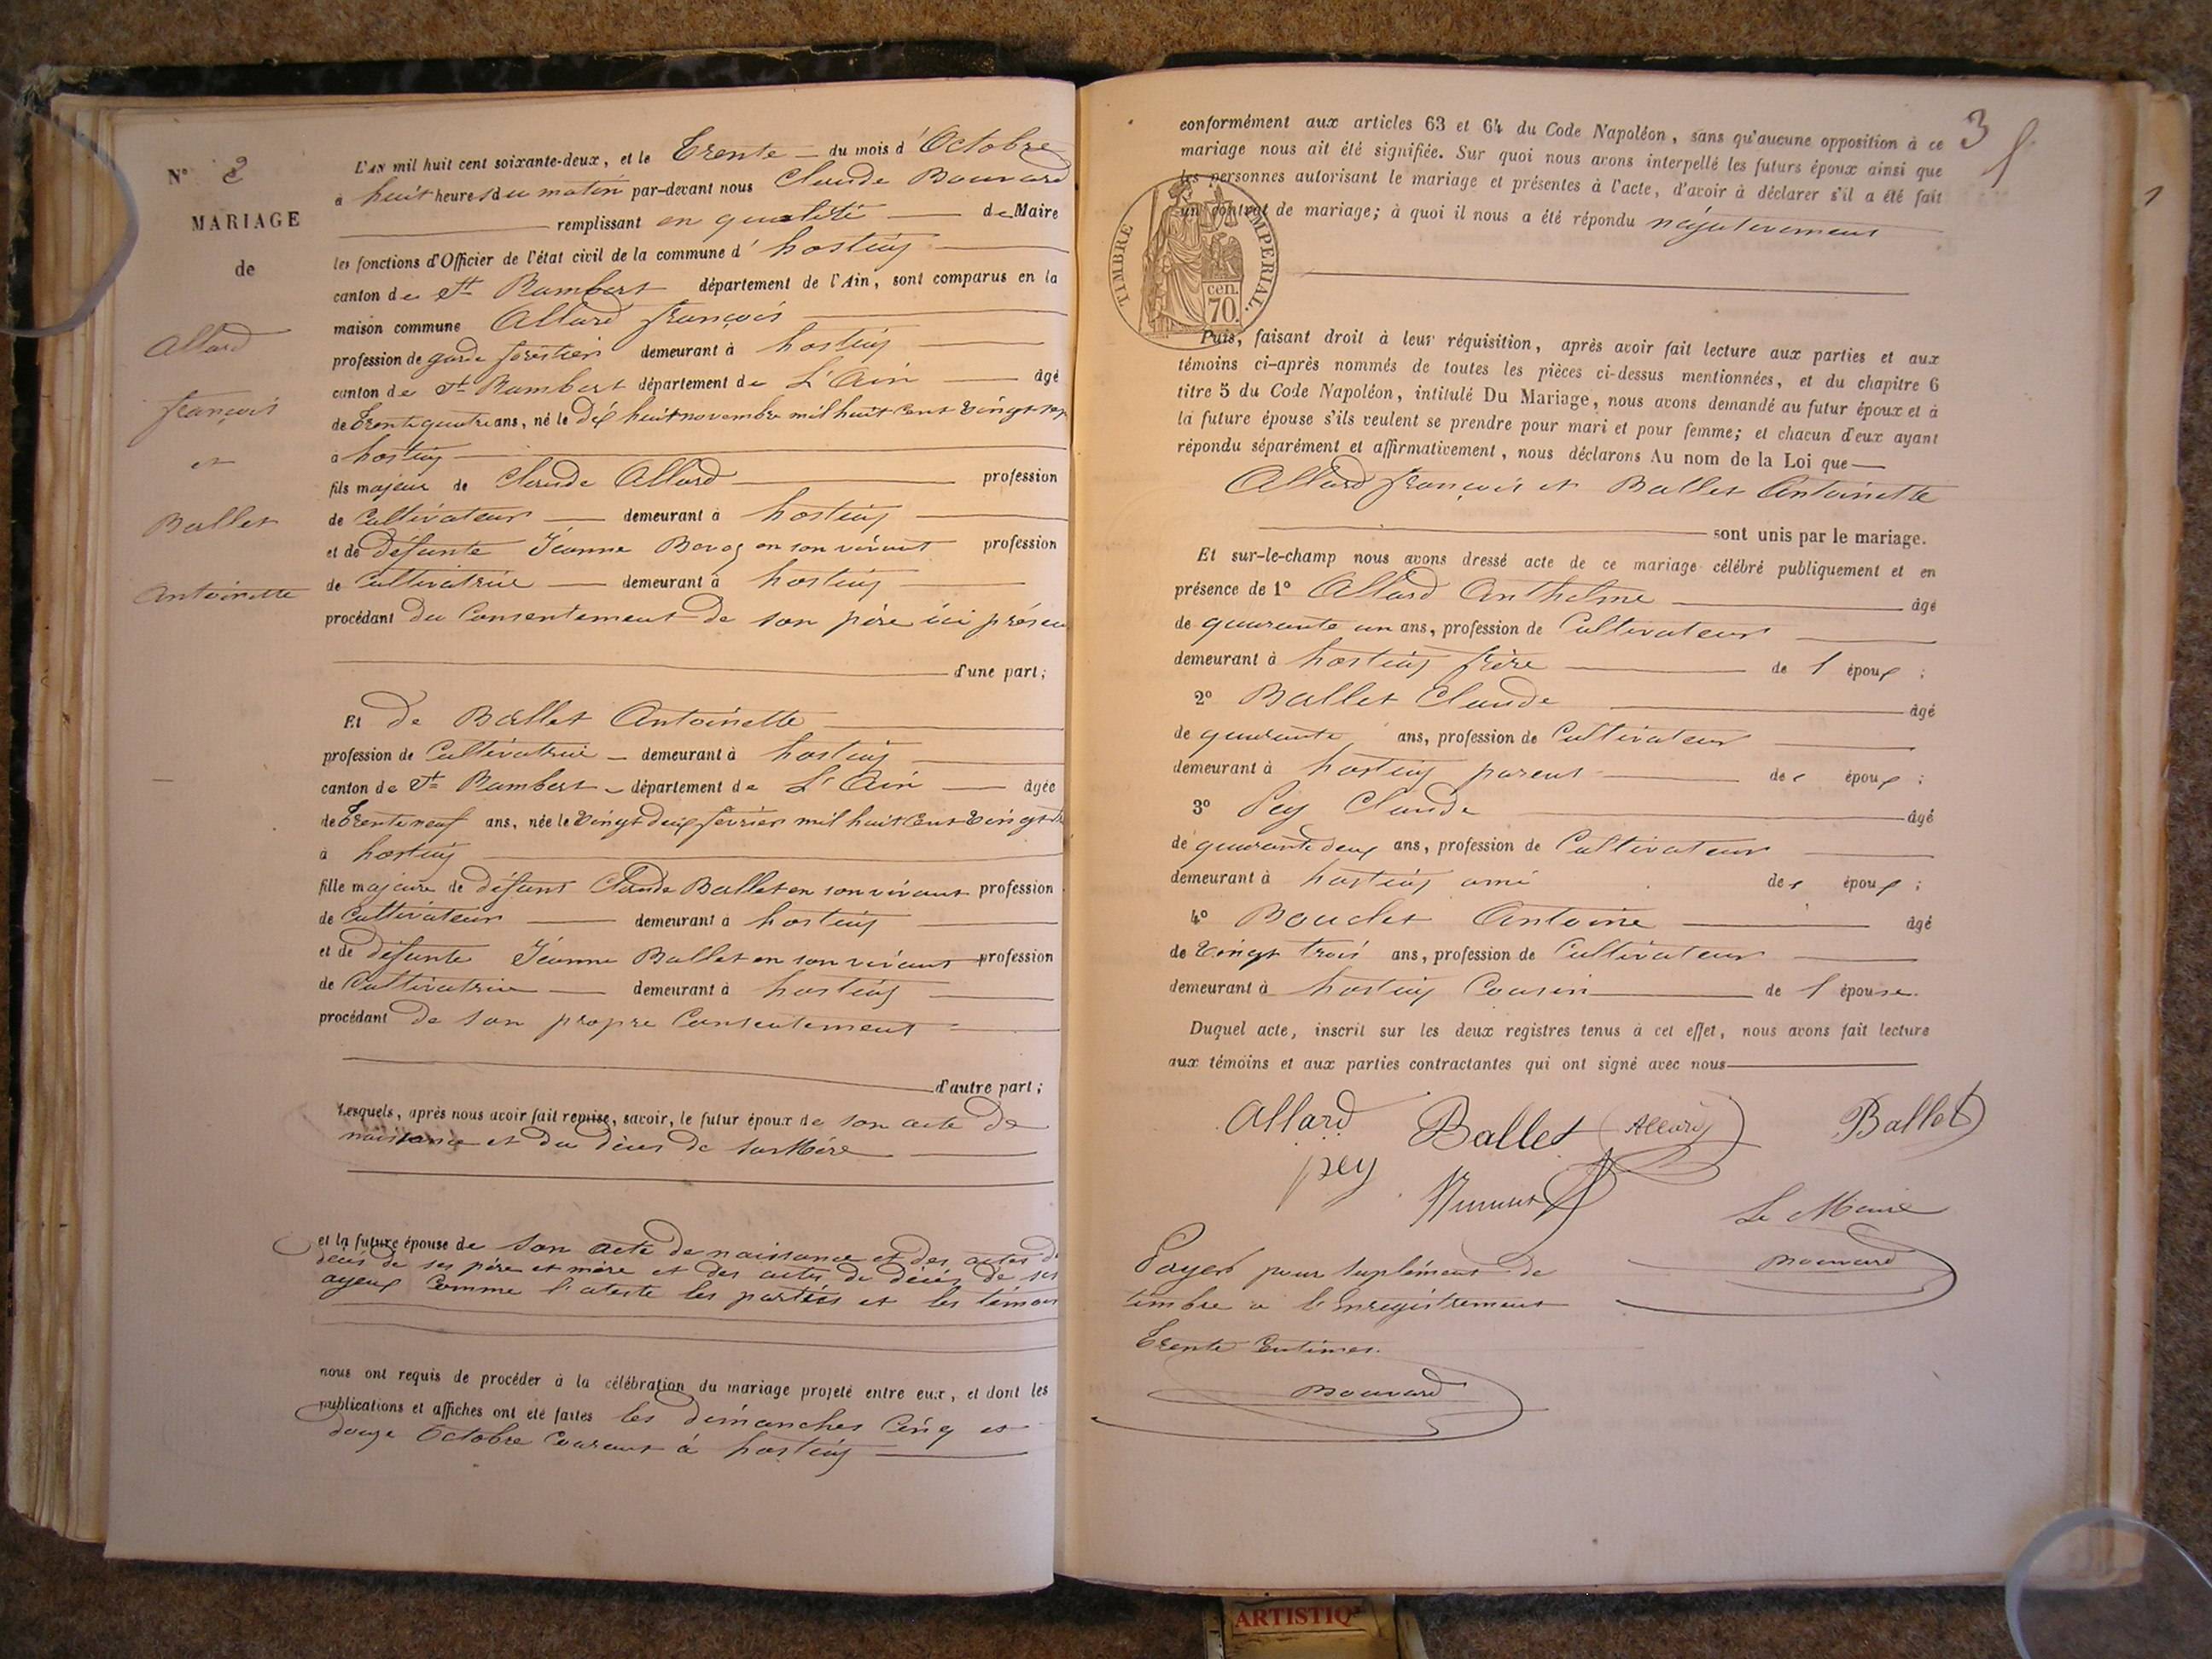 N° 2
MARIAGE
de
Allard
françois
et
Ballet
Antoinette
L'AN mil huit cent soixante-deux, et le Trente du mois d'Octobre
à huit heures du matin par-devant nous Claude Bouvard
remplissant en qualité de Maire
les fonctions d'Officier de l'état civil de la commune d' hostiaz
canton de St Rambert département de l'Ain, sont comparus en la
maison commune Allard françois
profession de garde forestier demeurant à hostiaz
canton de St Rambert département de L'Ain âgé
de Trente quatre ans, né le dix huit novembre mil huit Cent Vingt sept
à hostiaz
fils majeur de Claude Allard profession
de Cultivateur demeurant à hostiaz
et de défunte Jeanne en son vivant profession
de Cultivatrice demeurant à hostiaz
procédant du Consentement de son père ici présen
d'une part;
Et de Ballet Antoinette
profession de Cultivatrice demeurant à hostiaz
canton de St Rambert département de L'Ain âgée
de Trente neuf ans, née le Vingt deux février mil huit Cent Vingt
à hostiaz
fille majeure de défunt Claude Ballet en son vivant profession
de Cultivateur demeurant à hostiaz
et de défunte Jeanne Ballet en son vivant profession
de Cultivatrice demeurant à hostiaz
procédant de son propre Consentement
d'autre part;
Lesquels, après nous avoir fait remise, savoir, le futur époux de son acte de
naissance et du décès de sa Mère
et la future épouse de son acte de naissance et des actes de
décès de ses père et mère et des actes de décès de ses
ayeux Comme l'ateste les parties et les témoins
nous ont requis de procéder à la célébration du mariage projeté entre eux, et dont les
publications et affiches ont été faites les dimanches Cinq et
douze Octobre Courant à hostiaz
3
conformément aux articles 63 et 64 du Code Napoléon, sans qu'aucune opposition à ce
mariage nous ait été signifiée. Sur quoi nous avons interpellé les futurs époux ainsi que
les personnes autorisant le mariage et présentes à l'acte, d'avoir à déclarer s'il a été fait
un contrat de mariage; à quoi il nous a été répondu négativement
TIMBRE IMPERIAL.
cen.
70.
Puis, faisant droit à leur réquisition, après avoir fait lecture aux parties et aux
témoins ci-après nommés de toutes les pièces ci-dessus mentionnées, et du chapitre 6
titre 5 du Code Napoléon, intitulé Du Mariage, nous avons demandé au futur époux et à
la future épouse s'ils veulent se prendre pour mari et pour femme; et chacun d'eux ayant
répondu séparément et affirmativement, nous déclarons Au nom de la Loi que
Allard françois et Ballet Antoinette
sont unis par le mariage.
Et sur-le-champ nous avons dressé acte de ce mariage célébré publiquement et en
présence de 1° Allard Anthelme âgé
de quarante un ans, profession de Cultivateur
demeurant à hostiaz frère de l époux ;
2° Ballet Claude âgé
de quarante ans, profession de Cultivateur
demeurant à hostiaz parent des époux ;
3° Pey Claude âgé
de quarante deux ans, profession de Cultivateur
demeurant à hostiaz ami des époux ;
4° Boudet Antoine âgé
de Vingt trois ans, profession de Cultivateur
demeurant à hostiaz Cousin de l épouse.
Duquel acte, inscrit sur les deux registres tenus à cet effet, nous avons fait lecture
aux témoins et aux parties contractantes qui ont signé avec nous
Allard Ballet Allard Ballet
pey
Le Maire
Bouvard
Payer pour suplément de
timbre a l'Enregistrement
Trente Centimes.
Bouvard
1
ARTISTIQ